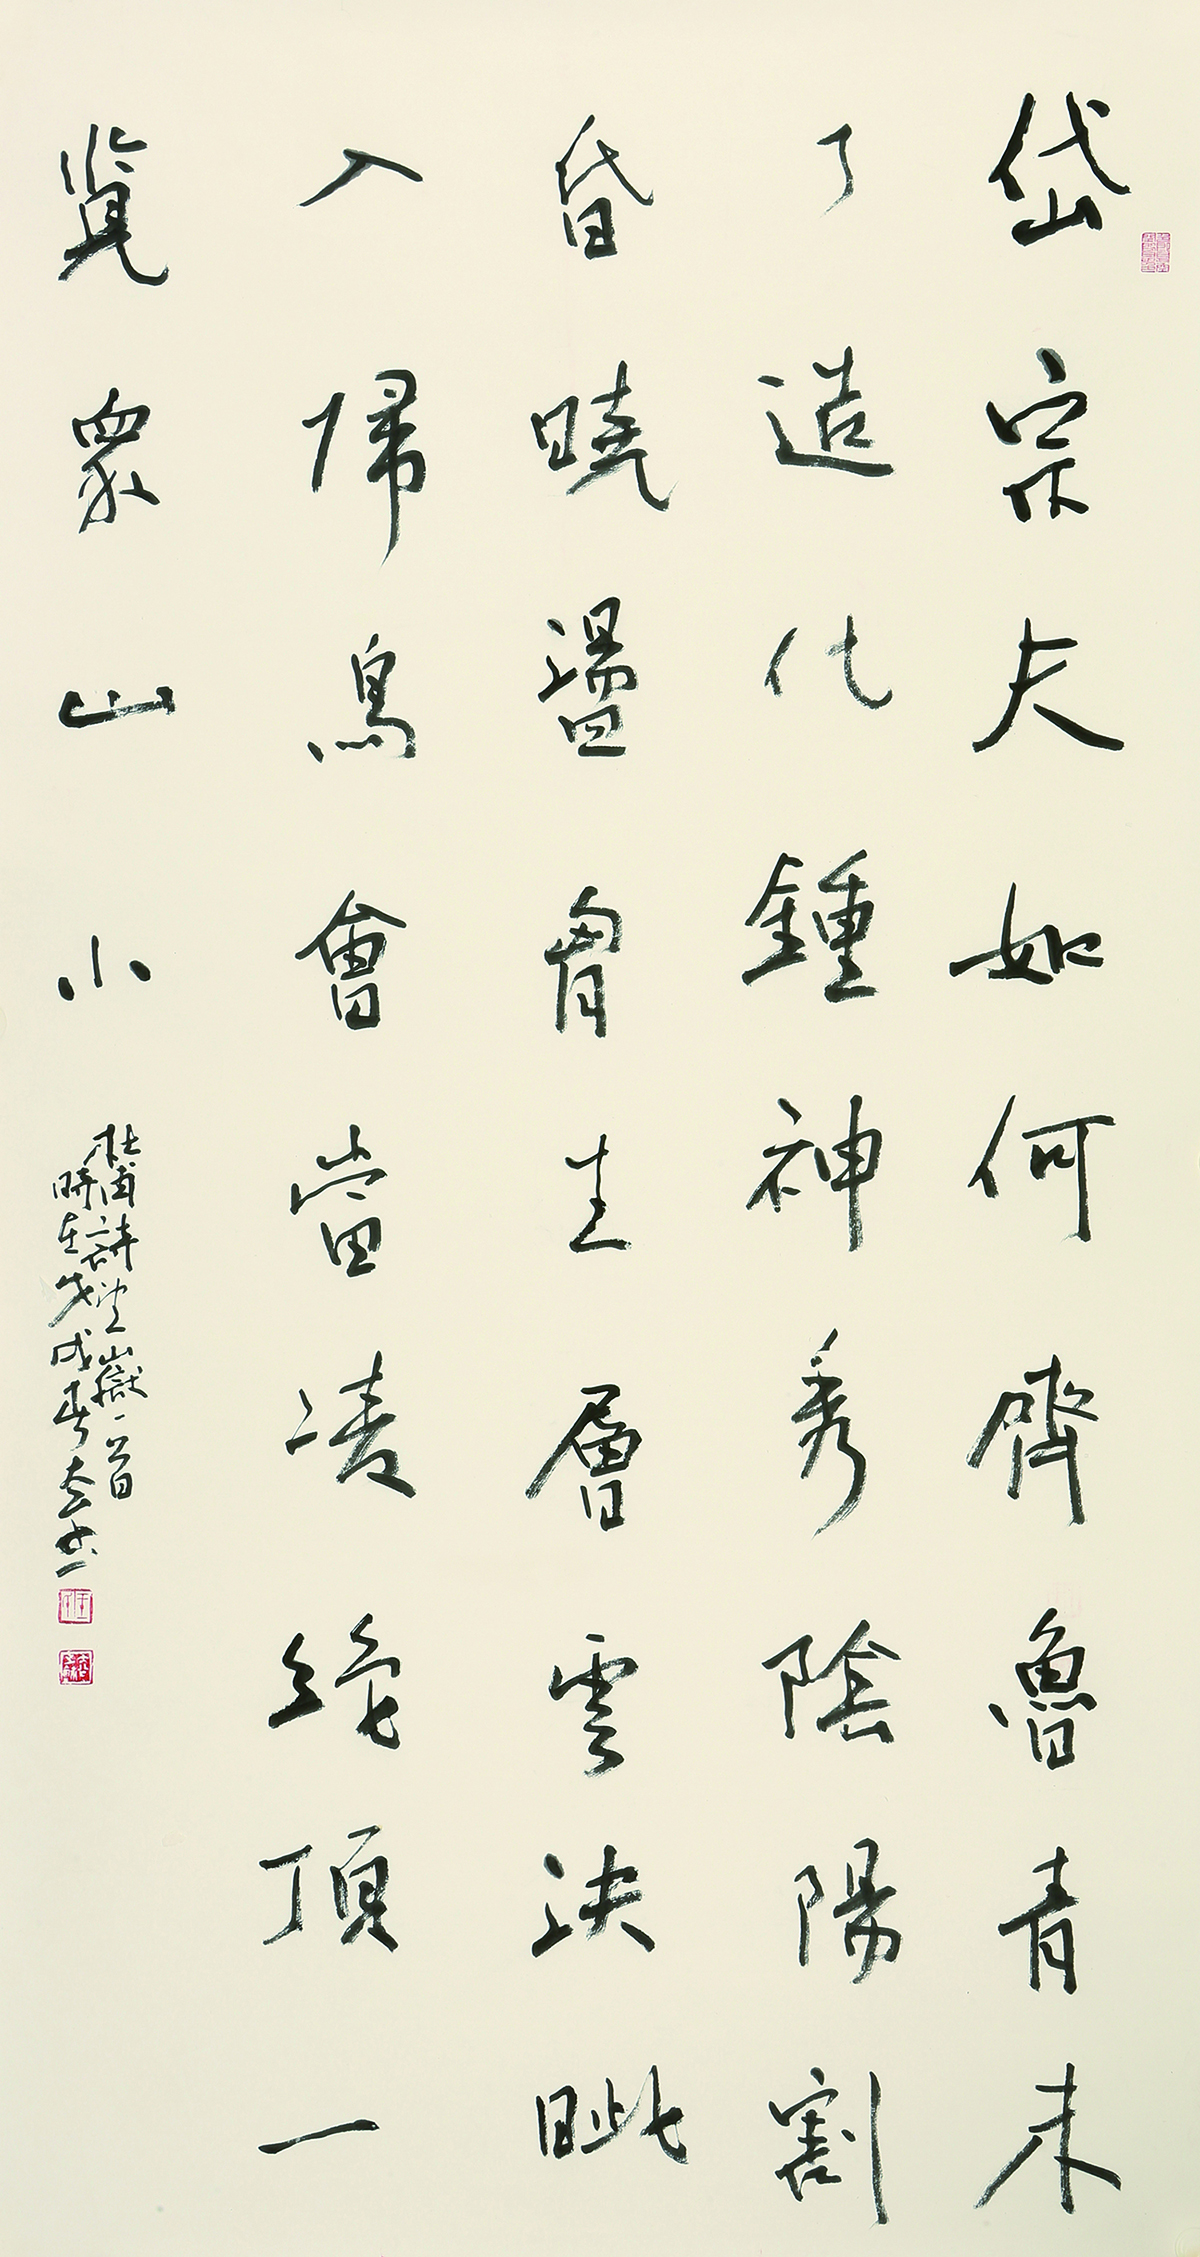 岱宗夫如何齊魯青未
了造化鍾神秀陰陽割
昏曉盪胷生層雲決眦
入帰鳥會當凌絕頂一
覽眾山小
杜甫詩望嶽一首
時在戊戌春